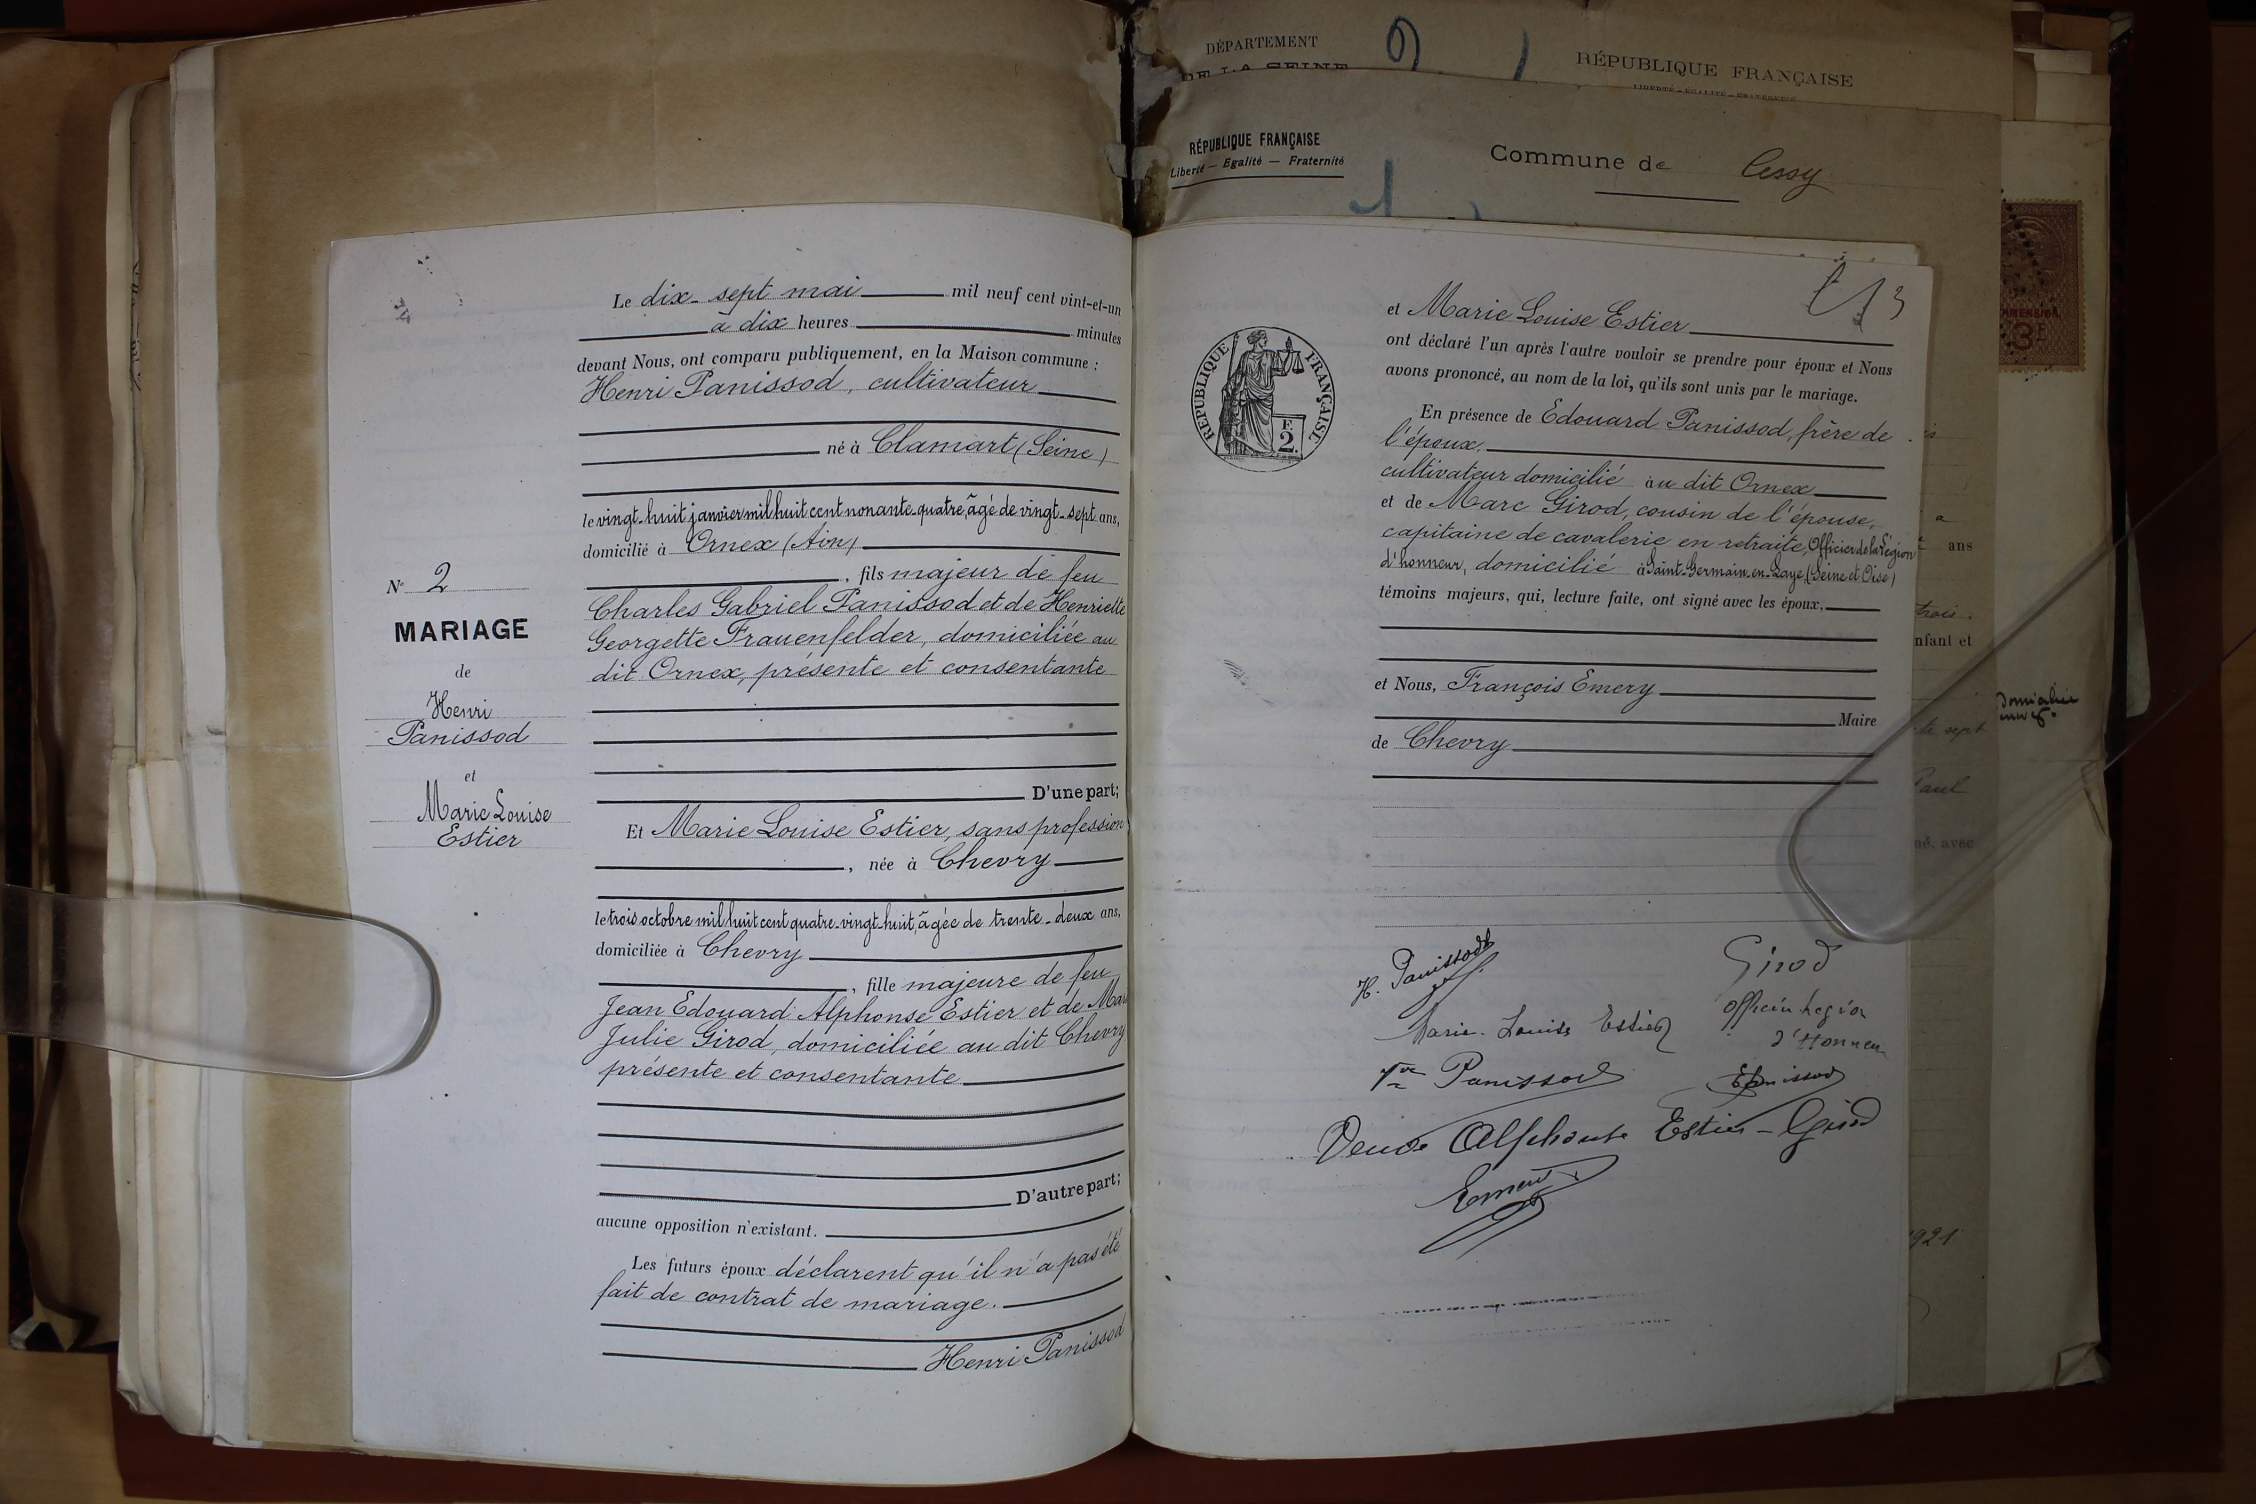 N° 2
MARIAGE
de
Henri
Panissod
et
Marie Louise
Estier
Le dix-sept mai mil neuf cent vint-et-un
à dix heures minutes
devant Nous, ont comparu publiquement, en la Maison commune :
Henri Panissod, cultivateur
né à Clamart (Seine)
le vingt-huit janvier mil huit cent nonante-quatre, âgé de vingt-sept ans,
domicilié à Ornex (Ain)
, fils majeur de feu
Charles Gabriel Panissod et de Henriette
Georgette Frauenfelder, domiciliée au
dit Ornex, présente et consentante
D'une part;
Et Marie Louise Estier, sans profession
, née à Chevry
le trois octobre mil huit cent quatre-vingt-huit, âgée de trente-deux ans,
domiciliée à Chevry
, fille majeure de feu
Jean Edouard Alphonse Estier et de
Julie Girod, domiciliée au dit Chevry
présente et consentante
D'autre part;
aucune opposition n'existant.
Les futurs époux déclarent qu'il n'a pas été
fait de contrat de mariage.
Henri Panissod
DÉPARTEMENT
DE LA SEINE
RÉPUBLIQUE FRANÇAISE
LIBERTÉ – EGALITÉ – FRATERNITÉ
RÉPUBLIQUE FRANÇAISE
Liberté – Egalité – Fraternité
Commune de Cessy
3F
RÉPUBLIQUE FRANÇAISE
F.
2.
et Marie Louise Estier
ont déclaré l'un après l'autre vouloir se prendre pour époux et Nous
avons prononcé, au nom de la loi, qu'ils sont unis par le mariage.
En présence de Edouard Panissod, frère de
l'époux,
cultivateur domicilié au dit Ornex
et de Marc Girod, cousin de l'épouse,
capitaine de cavalerie en retraite, Officier de la Légion
d'honneur, domicilié à Saint-Germain-en-Laye, (Seine et Oise)
témoins majeurs, qui, lecture faite, ont signé avec les époux,
et Nous, François Emery
Maire
de Chevry
H. Panissod
Girod
officier Legion
d'Honneur
Marie-Louise Estier
Vve Panissod
E Panissod
Veuve Alphonse Estier-Girod
Emery
ans
trois.
nfant et
sept
Paul
né, avec
1921